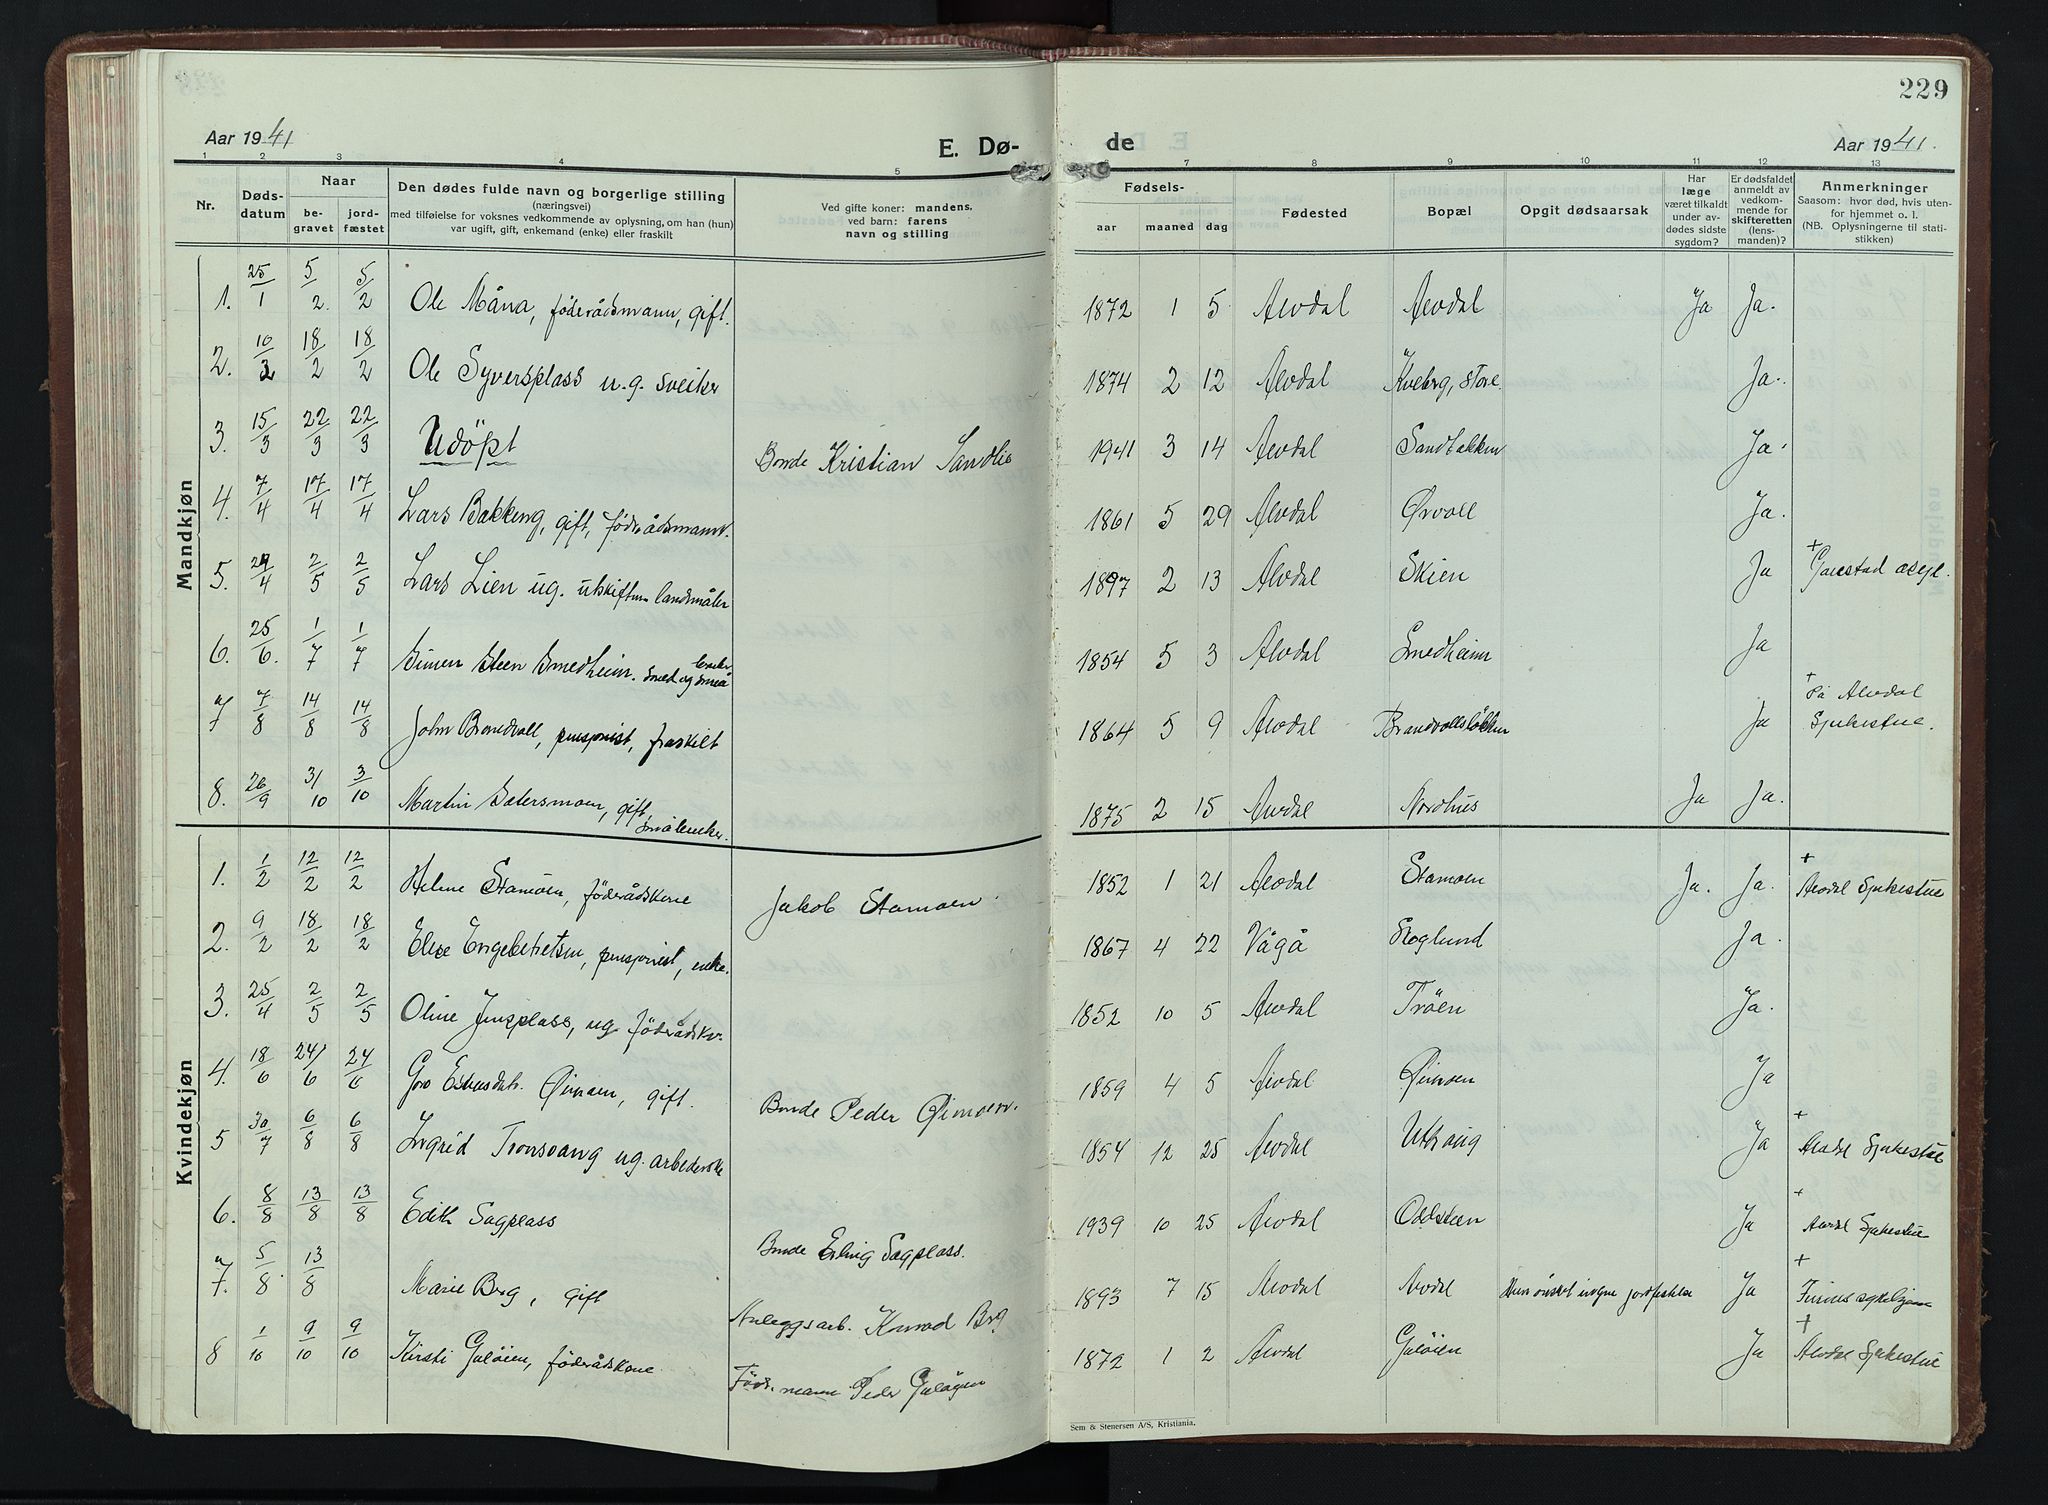 229
Aar 1941
E. Dø-
de
Aar 1941.
1 2 3 4 5 6 7 8 9 10 11 12 13
Nr.
Døds-
datum
Naar
be-
gravet
jord-
fæstet
Den dødes fulde navn og borgerlige stilling
(næringsvei)
med tilføielse for voksnes vedkommende av oplysning, om han (hun)
var ugift, gift, enkemand (enke) eller fraskilt
Ved gifte koner: mandens.
ved barn: farens
navn og stilling
Fødsels-
aar maaned dag
Fødested
Bopæl
Opgit dødsaarsak
Har
læge
været tilkaldt
under av-
dødes sidste
sygdom?
Er dødsfaldet
anmeldt av
vedkom-
mende for
skifteretten
(lens-
manden)?
Anmerkninger
Saasom: hvor død, hvis uten-
for hjemmet o. l.
(NB. Oplysningerne til stati-
stikken)
Mandkjøn
1. 25/1 5/2 5/2 Ole Måna, föderådsmann, gift. 1872 1 5 Alvdal Alvdal Ja Ja.
2. 10/2 18/2 18/2 Ole Syversplass u.g. sveiker 1874 2 12 Alvdal Kveberg, store Ja.
3. 15/3 22/3 22/3 Udöpt Bonde Kristian Sandlie 1941 3 14 Alvdal Sandbakken Ja.
4. 7/4 17/4 17/4 Lars Bakkeng, gift, föderådsmann. 1861 5 29 Alvdal Ørvoll Ja.
5. 24/4 2/5 2/5 Lars Lien ug. utskiftn. landmåler 1897 2 13 Alvdal Skien Ja + Gaustad asyl.
6. 25/6 1/7 1/7 Simen Steen Smedheim. Smed og små bruker 1854 5 3 Alvdal Smedheim Ja
7 7/8 14/8 14/8 John Brandvoll, pensjonist, fraskilt 1864 5 9 Alvdal Brandvollsløkken Ja + På Alvdal Sjukestue.
8. 26/9 3/10 3/10 Martin Setersmoen, gift, småbruker. 1875 2 15 Alvdal Nordhus Ja Ja.
Kvindekjøn
1. 1/2 12/2 12/2 Helene Stamoen, föderådskone Jakob Stamoen. 1852 1 21 Alvdal Stamoen Ja. Ja. + Alvdal Sjukestue
2. 9/2 18/2 18/2 Elise Engebretsen, pensjonist, enke. 1867 4 22 Vågå Skoglund Ja.
3. 25/4 2/5 2/5 Oline Jensplass, ug. föderådskv. 1852 10 5 Alvdal Trøen Ja.
4. 18/6 24/6 24/6 Goro Øimoen, gift. Bonde Peder Øimoen. 1859 4 5 Alvdal Øimoen Ja
5 30/7 6/8 6/8 Ingrid Tronsvang ug. arbederske 1854 12 25 Alvdal Utheng Ja + Alvdal Sjukestue
6. 8/8 13/8 13/8 Edith Sagplass Bonde Erling Sagplass. 1939 10 25 Alvdal Oddsteen Ja + Alvdal Sjukestue
7. 5/8. 13/8 Marie Berg, gift Anleggsarb. Konrad Berg 1893 7 15 Alvdal Alvdal Hun ønsket ingen jordfestelse Ja +
8 1/10 9/10 9/10 Kirsti Galøien, föderådskone Föd. mann Peder Galøyen 1872 1 2 Alvdal Galøien Ja + Alvdal Sjukestue
Sem & Stenersen A/S, Kristiania.